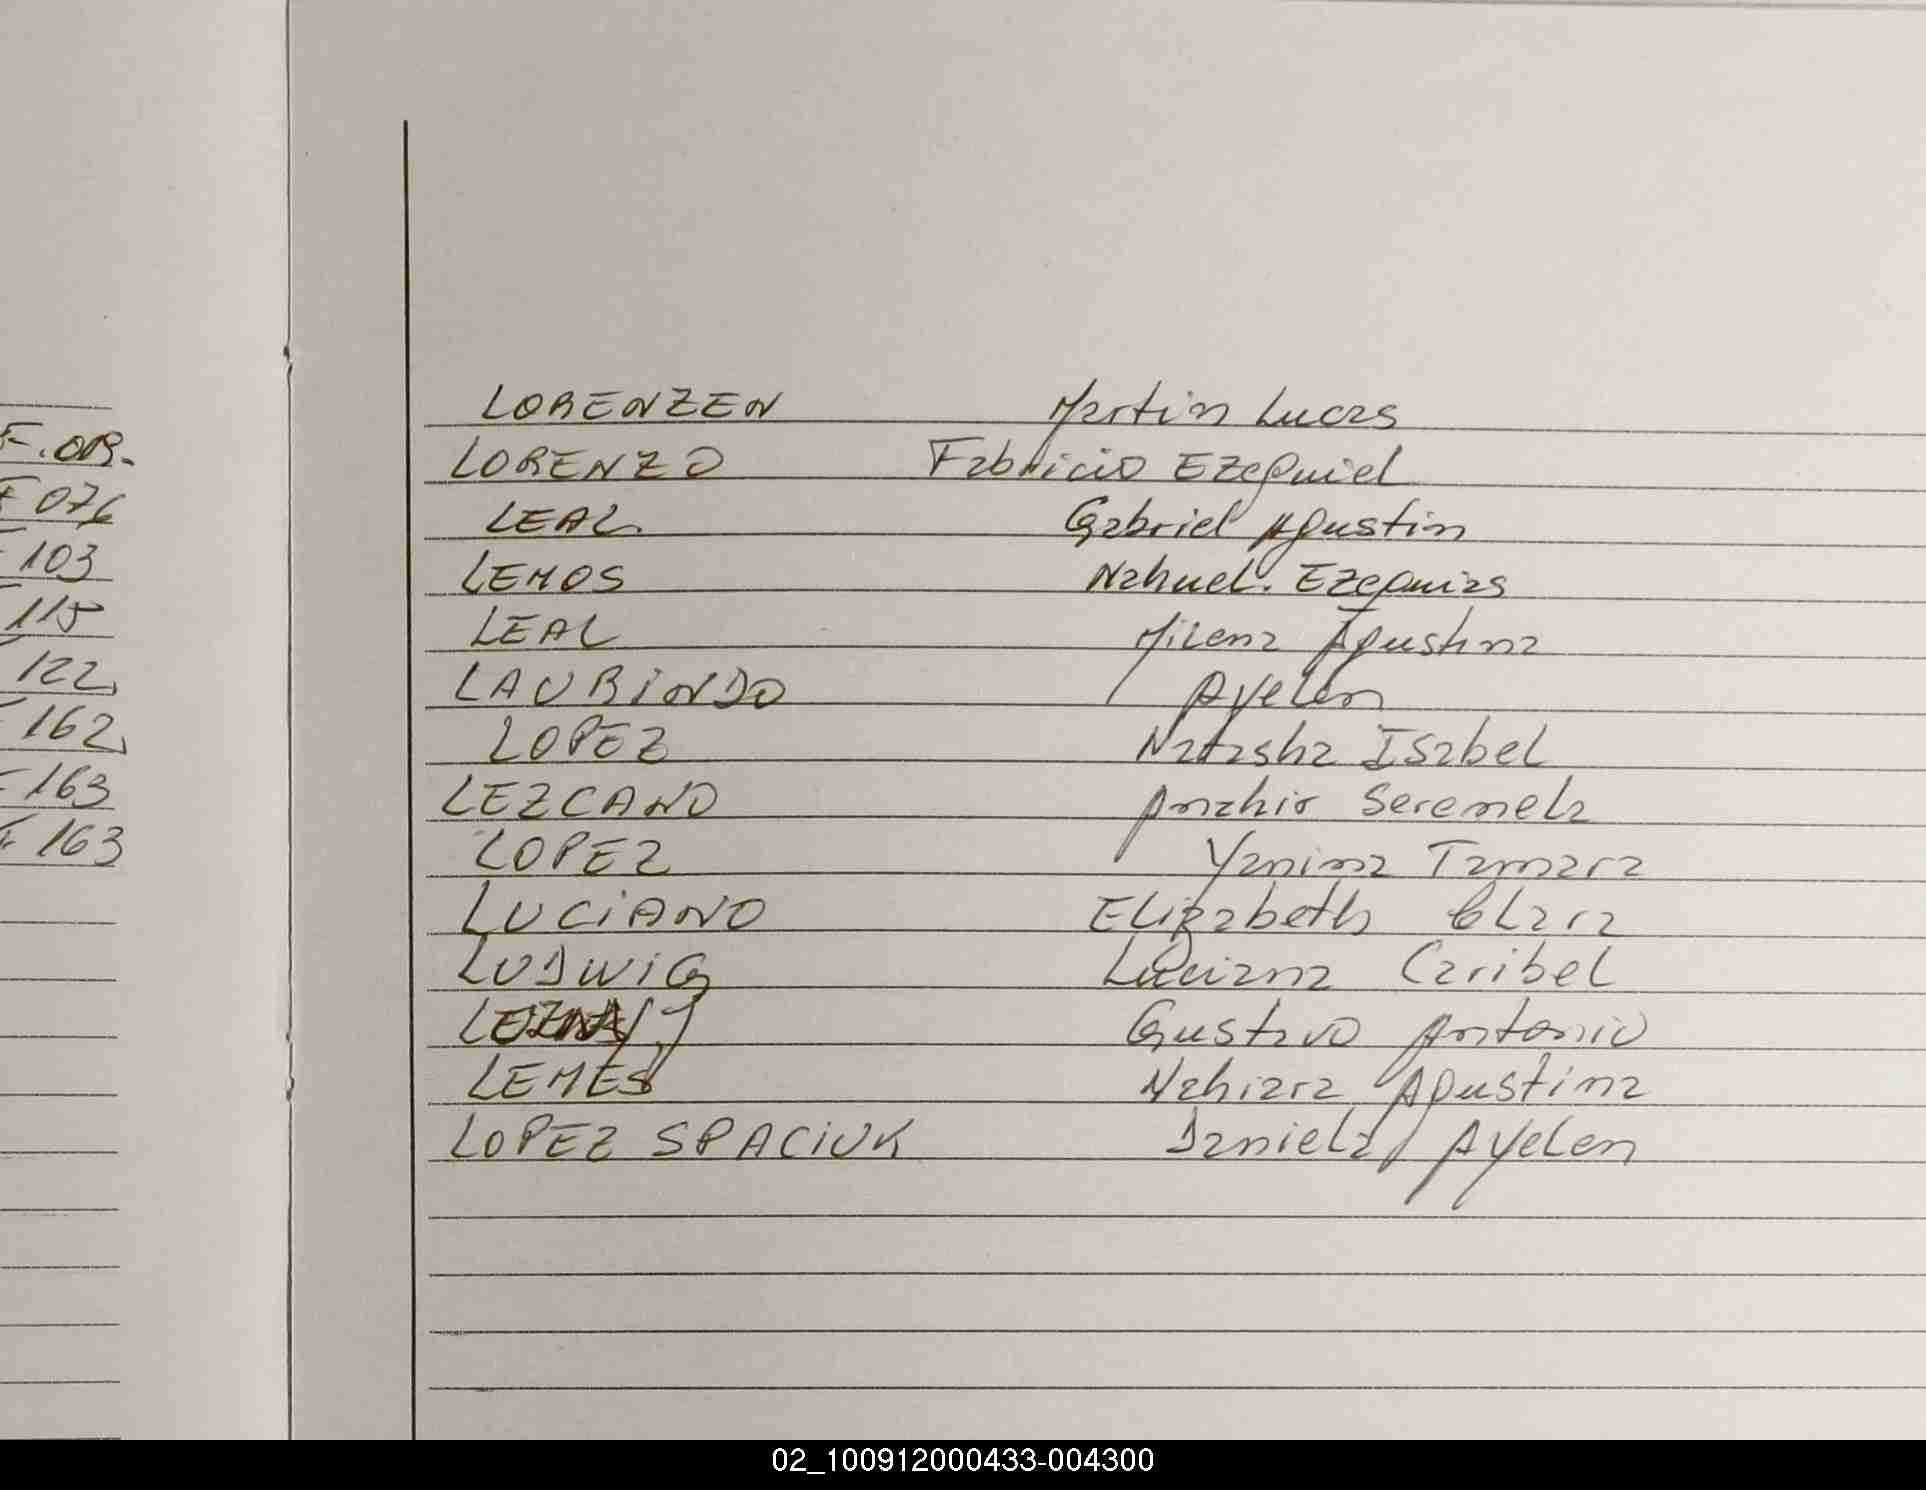 F. 013.
F 076
F 103
F 115
F 122
F 162
F 163
F. 163
LORENZEN Martin Lucas
LORENZO Fabricio Ezequiel
LEAL Gabriel Agustin
LEMOS Nahuel. Ezequias
LEAL Milena Agustina
LAURiNDO Ayelen
LOPEZ Natasha Isabel
LEZCANO Anahir Seremela
LOPEZ Yanina Tamara
LUCiANO Elizabeth Clara
LUDWiG Luciana Caribel
Gustavo Antonio
LEMES Nahiara Agustina
LOPEZ SPACiUK Daniela Ayelen
02_100912000433-004300